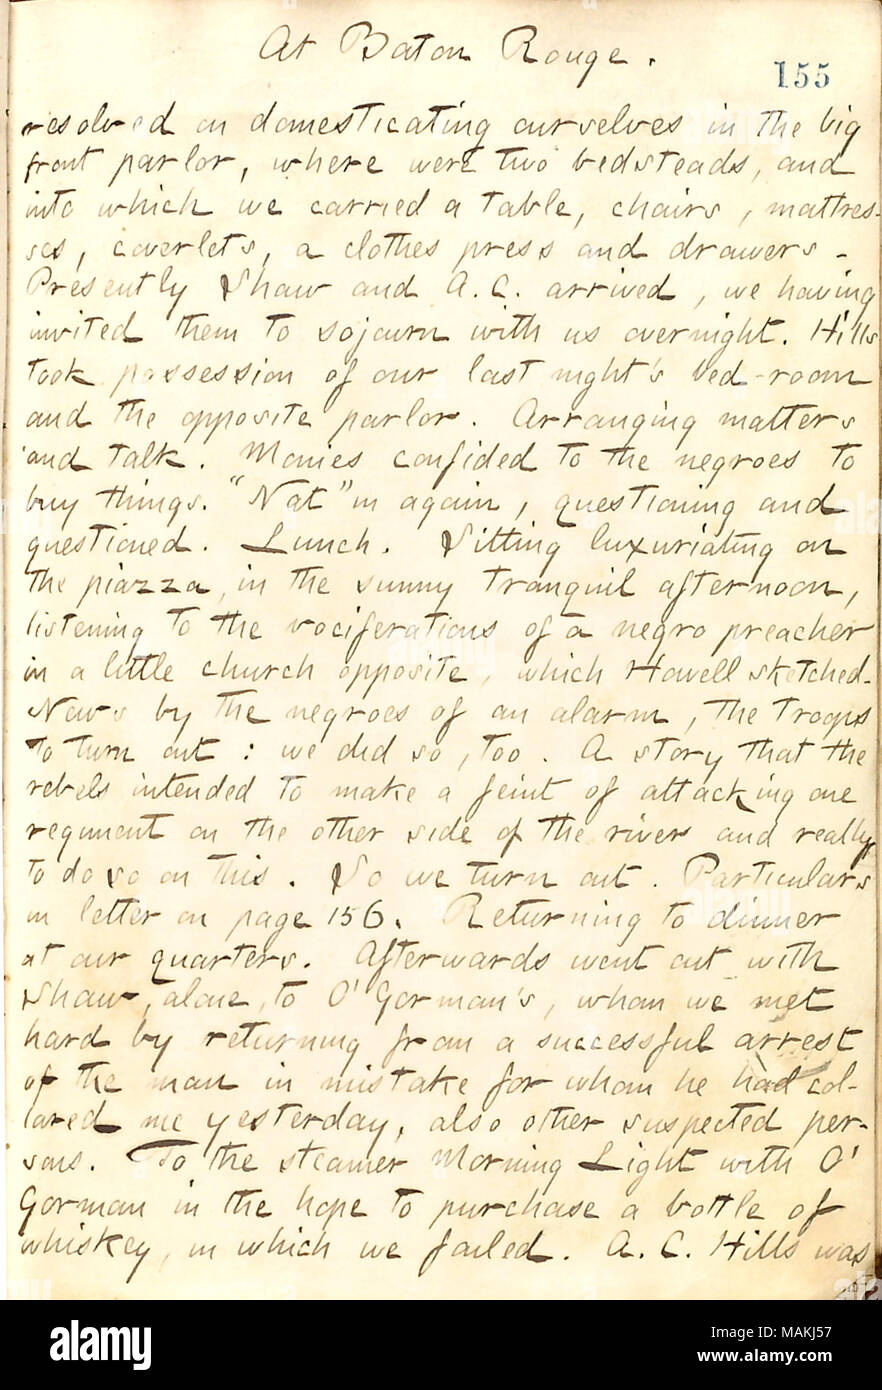 At Baton Rouge.
155
resolved on domesticating ourselves in the big
front parlor, where were two bedsteads, and
into which we carried a table, chairs, mattres-
ses, coverlets, a clothes press and drawers -
Presently Shaw and A.C. arrived, we having
invited them to sojourn with us overnight. Hills
took possession of our last night's bed-room
and the opposite parlor. Arranging matters
and talk. Monies confided to the negroes to
buy things. "Nat" in again, questioning and
questioned. Lunch. Sitting luxuriating on
the piazza, in the sunny tranquil afternoon,
listening to the vociferations of a negro preacher
in a little church opposite, which Howell sketched.
News by the negroes of an alarm, the troops
to turn out: we did so, too. A story that the
rebels intended to make a feint of attacking one
regiment on the other side of the river and really
to do so on this. So we turn out. Particulars
in letter on page 156. Returning to dinner
at our quarters. Afterwards went out with
Shaw, alone, to O'Gorman's, whom we met
hard by returning from a successful arrest
of the man in mistake for whom he had col-
lared me yesterday, also other suspected per-
sons. To the steamer Morning Light with O'
Gorman in the hope to purchase a bottle of
whiskey, in which we failed. A.C. Hills was
alamy
Image ID: MAKJ57
www.alamy.com